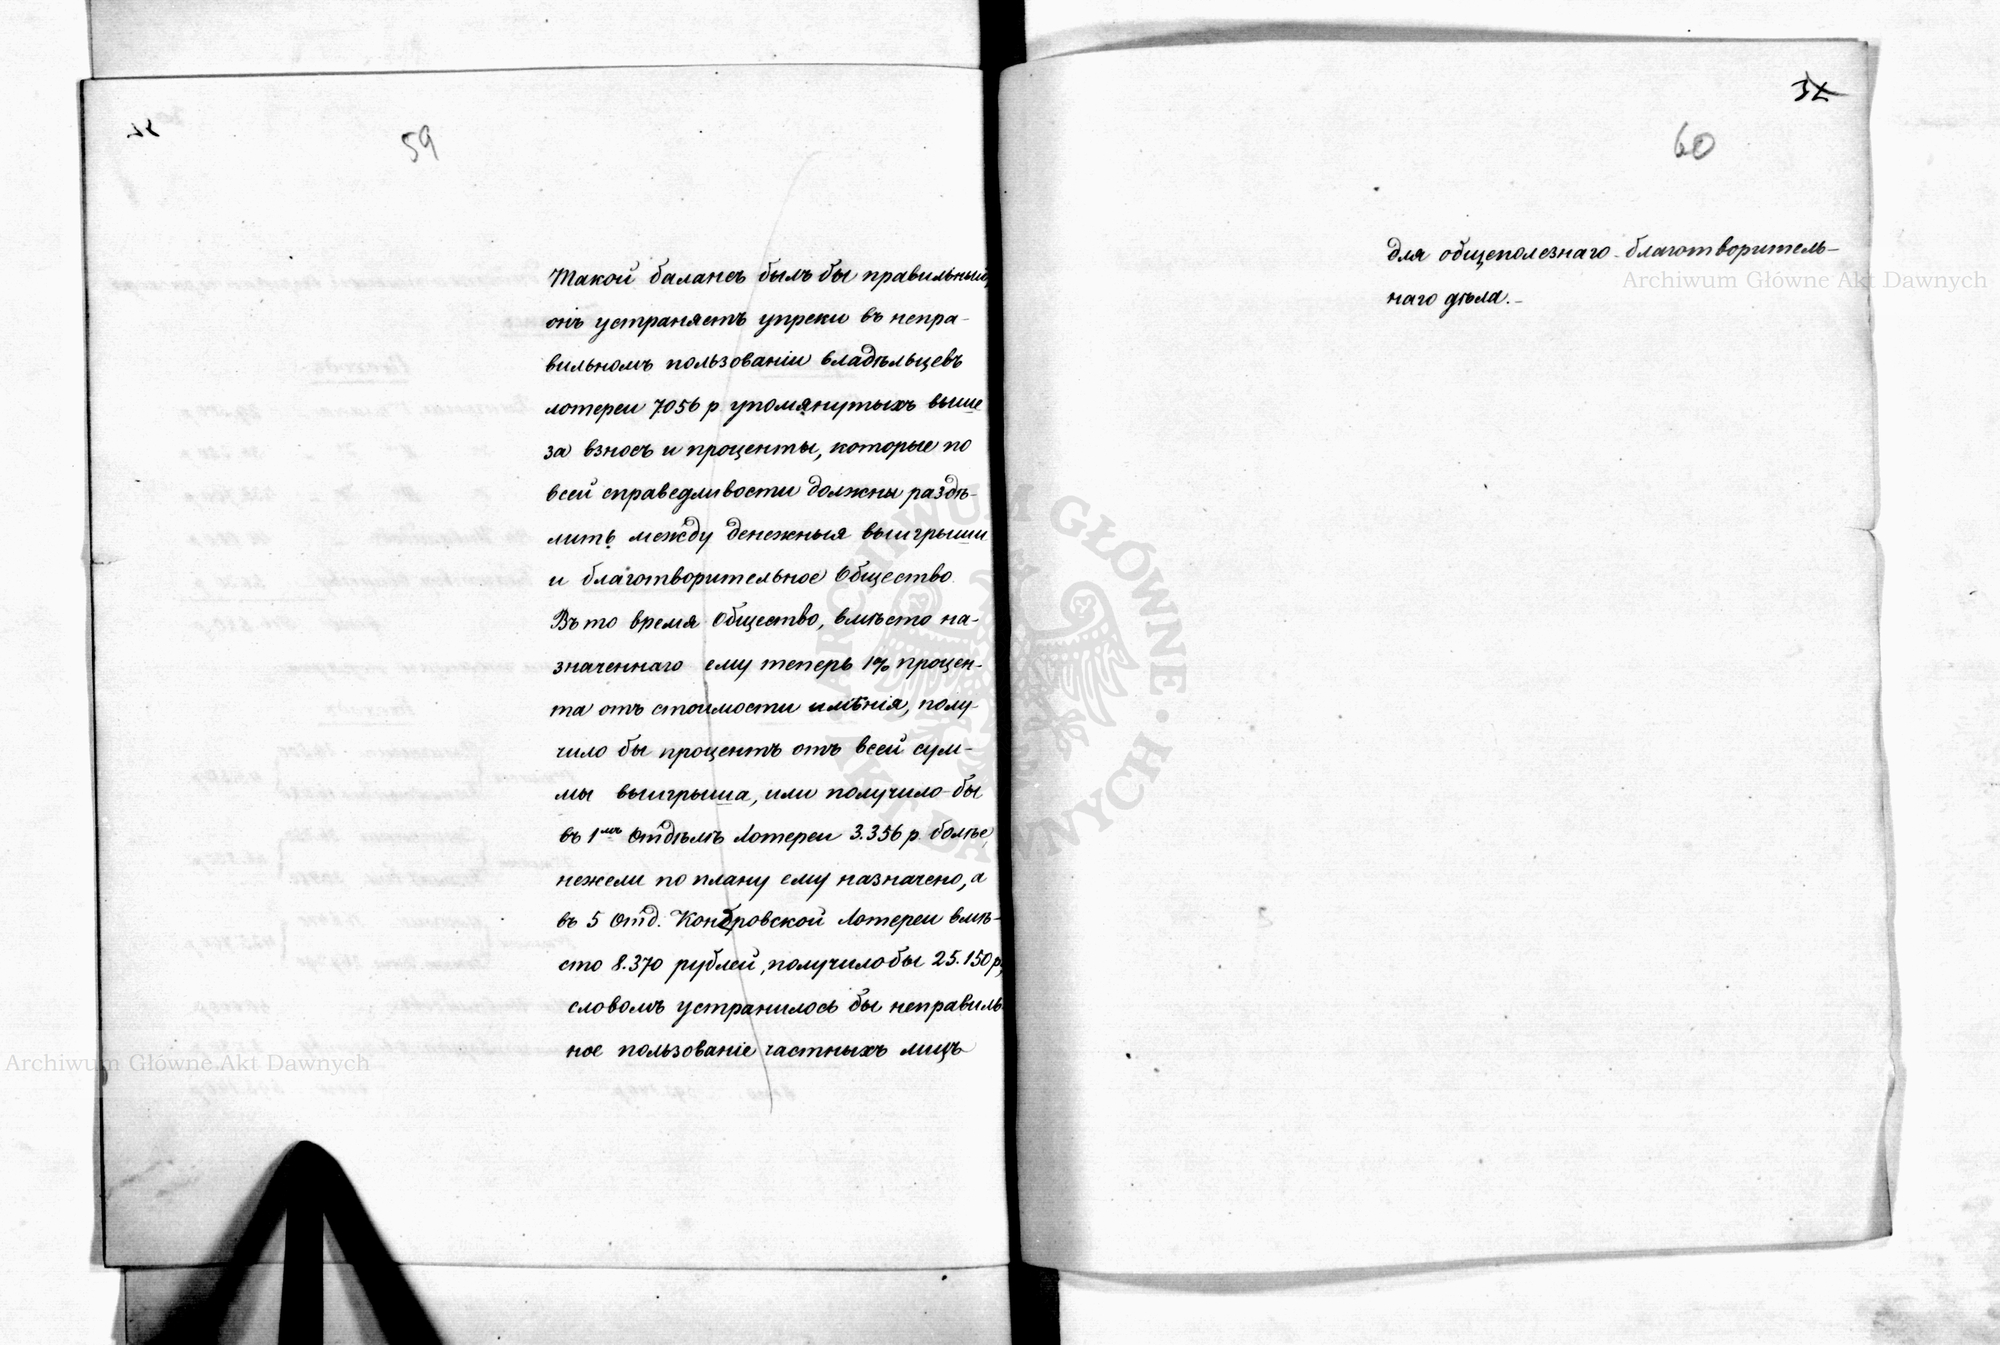 59
Такой балансъ былъ бы правильный,
онъ устраняетъ упреки въ непра-
вильномъ пользованіи владѣльцевъ
лотереи 7056 р упомянутыхъ выше
за взносъ и проценты, которые по
всей справедливости должны раздѣ-
лить между денежныя выигрыши
и благотворительное Общество
Въ то время Общество, вмѣсто на-
значеннаго ему теперь 1% процен-
та отъ стоимости имѣнія, полу-
чило бы процентъ отъ всей сум-
мы выигрыша, или получило-бы
въ 1мъ Отдѣлѣ Лотереи 3.356 р. болѣе,
нежели по плану ему назначено, а
въ 5 Отд. Кондровской Лотереи вмѣ-
сто 8.370 рублей, получило бы 25.150 р,
словомъ устранилось бы неправиль-
ное пользованіе частныхъ лицъ
60
для общеполезнаго-благотворитель-
наго дѣла.-
Archiwum Główne Akt Dawnych
Archiwum Główne Akt Dawnych
ARCHIWUM GŁÓWNE AKT DAWNYCH